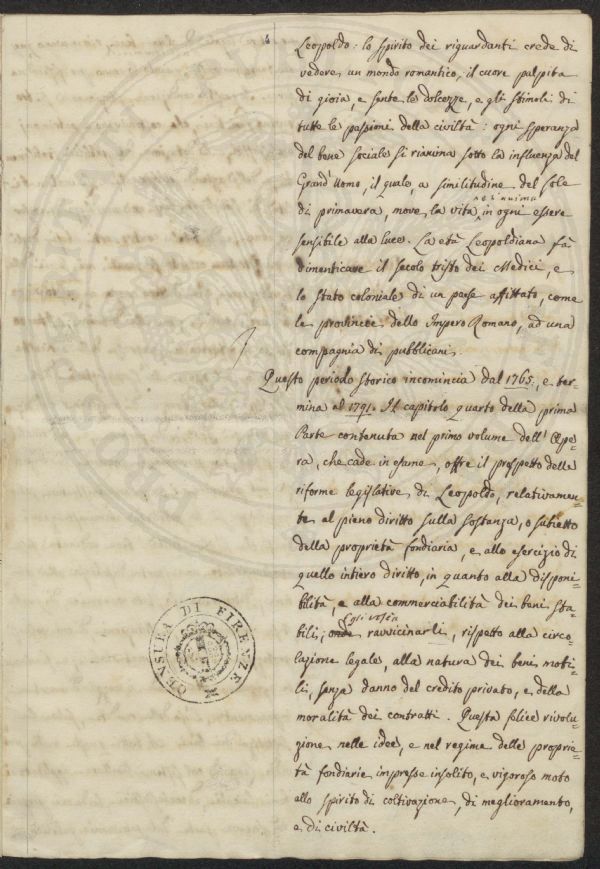 Leopoldo: lo spirito dei riguardanti crede di
vedere un mondo romantico, il cuore palpita
di gioia, e sente le dolcezze, e gli stimoli di
tutte le passioni della civiltà: ogni speranza
del bene sociale si rianima sotto la influenza del
Grand'Uomo, il quale, a similitudine del sole
di primavera, move la vita in ogni essere
sensibile alla luce. La età Leopoldiana fà
dimenticare il secolo tristo dei Medici, e
lo stato coloniale di un paese affittato, come
le provincie dello Impero Romano, ad una
compagnia di pubblicani.
Questo periodo storico incomincia dal 1765, e ter=
mina al 1791. Il capitolo quarto della prima
Parte contenuta nel primo volume dell'Ope=
ra, che cade in esame, offre il prospetto delle
riforme legislative di Leopoldo, relativamen=
te al pieno diritto sulla sostanza, o subietto
della proprietà fondiaria, e allo esercizio di
quello intiero diritto, in quanto alla disponi=
bilità, e alla commerciabilità dei beni sta=
bili; onde ravvicinarli, rispetto alla circo=
lazione legale, alla natura dei beni mobi=
li, senza danno del credito privato, e della
moralità dei contratti. Questa felice rivolu=
zione nelle idee, e nel regime delle proprie=
tà fondiarie impresse insolito, e vigoroso moto
allo spirito di coltivazione, di miglioramento,
e di civiltà.
CENSURA DI FIRENZE